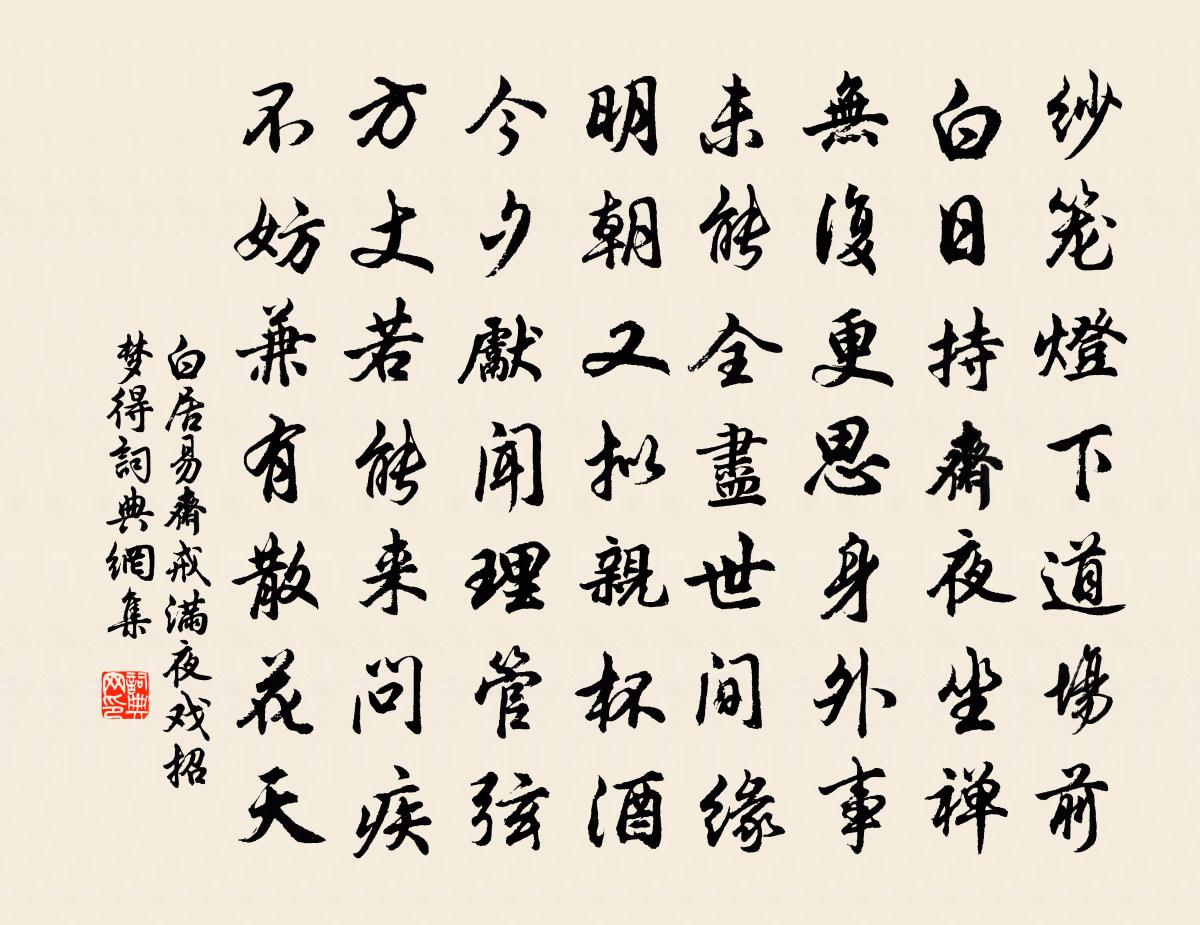 紗笼燈下道場前
白日持齋夜坐禅
無復更思身外事
未能全盡世间緣
明朝又拟親杯酒
今夕獻闻理管弦
方丈若能来问疾
不妨兼有散花天
白居易齋戒满夜戏招
梦得詞典網集
詞典网印